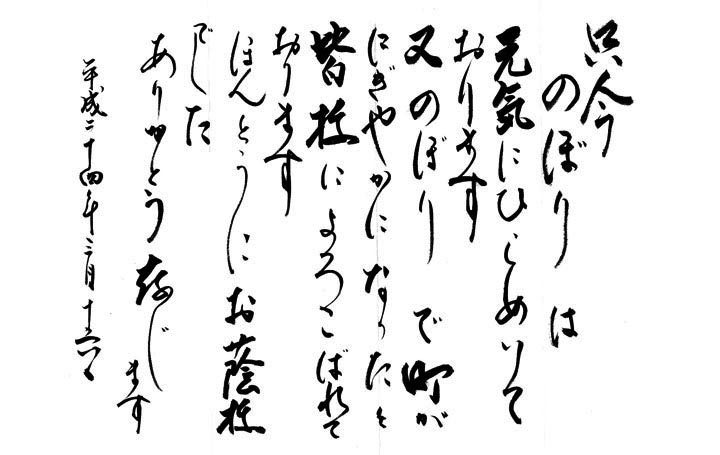 只今
のぼりは
元気にひらめいて
おります
又のぼりで町が
にぎやかになったと
皆様によろこばれて
おります
ほんとうにお蔭様
でした
ありがとう存じ
ます
平成二十四年三月十六日